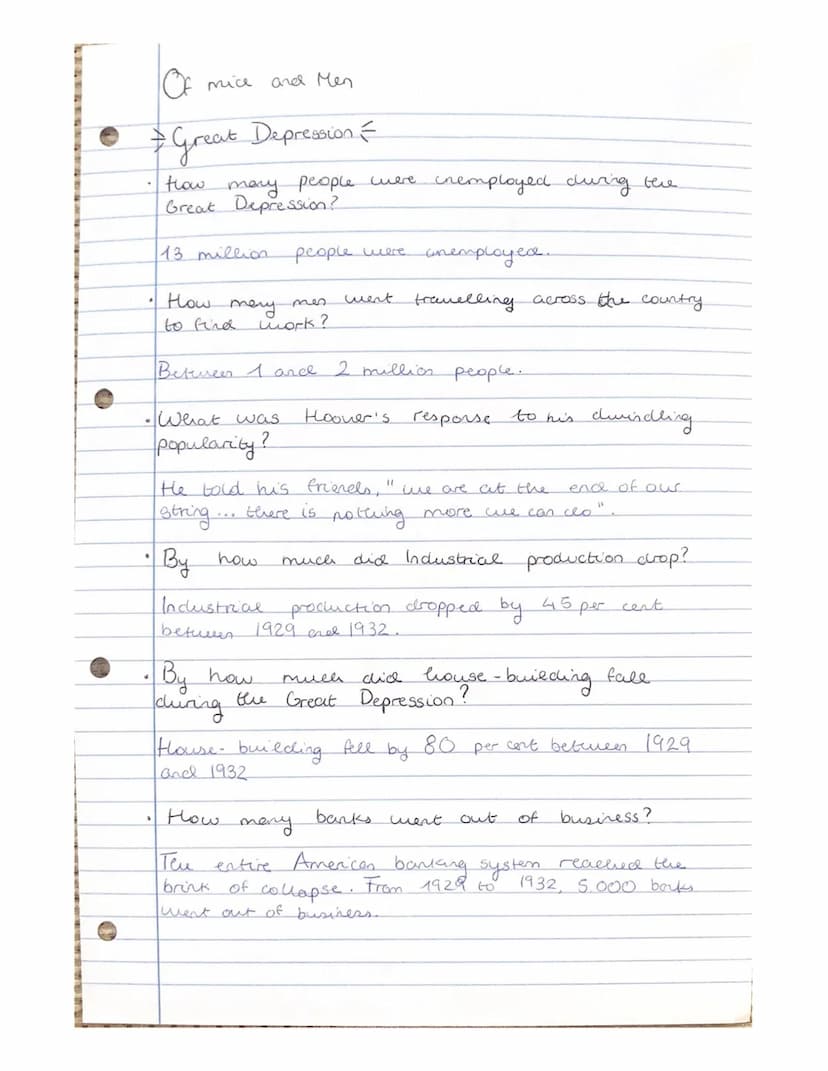 Of mice and Men
Great Depression
· How many people were unemployed during the
Great Depression?
13 million people were unemployed.
· How many men went travelling across the country
to find work?
Between 1 and 2 million people.
· What was Hoover's response to his dwindling
popularity?
He told his friends, "we are at the end of our
string... there is nothing more we can do".
· By how much did Industrial production drop?
Industrial production dropped by 45 per cent
between 1929 and 1932.
· By how much did house-building fall
during the Great Depression?
House-building fell by 80 per cent between 1929
and 1932
· How many banks went out of business?
The entire American banking system reached the
brink of collapse. From 1929 to 1932, 5.000 banks
went out of business.